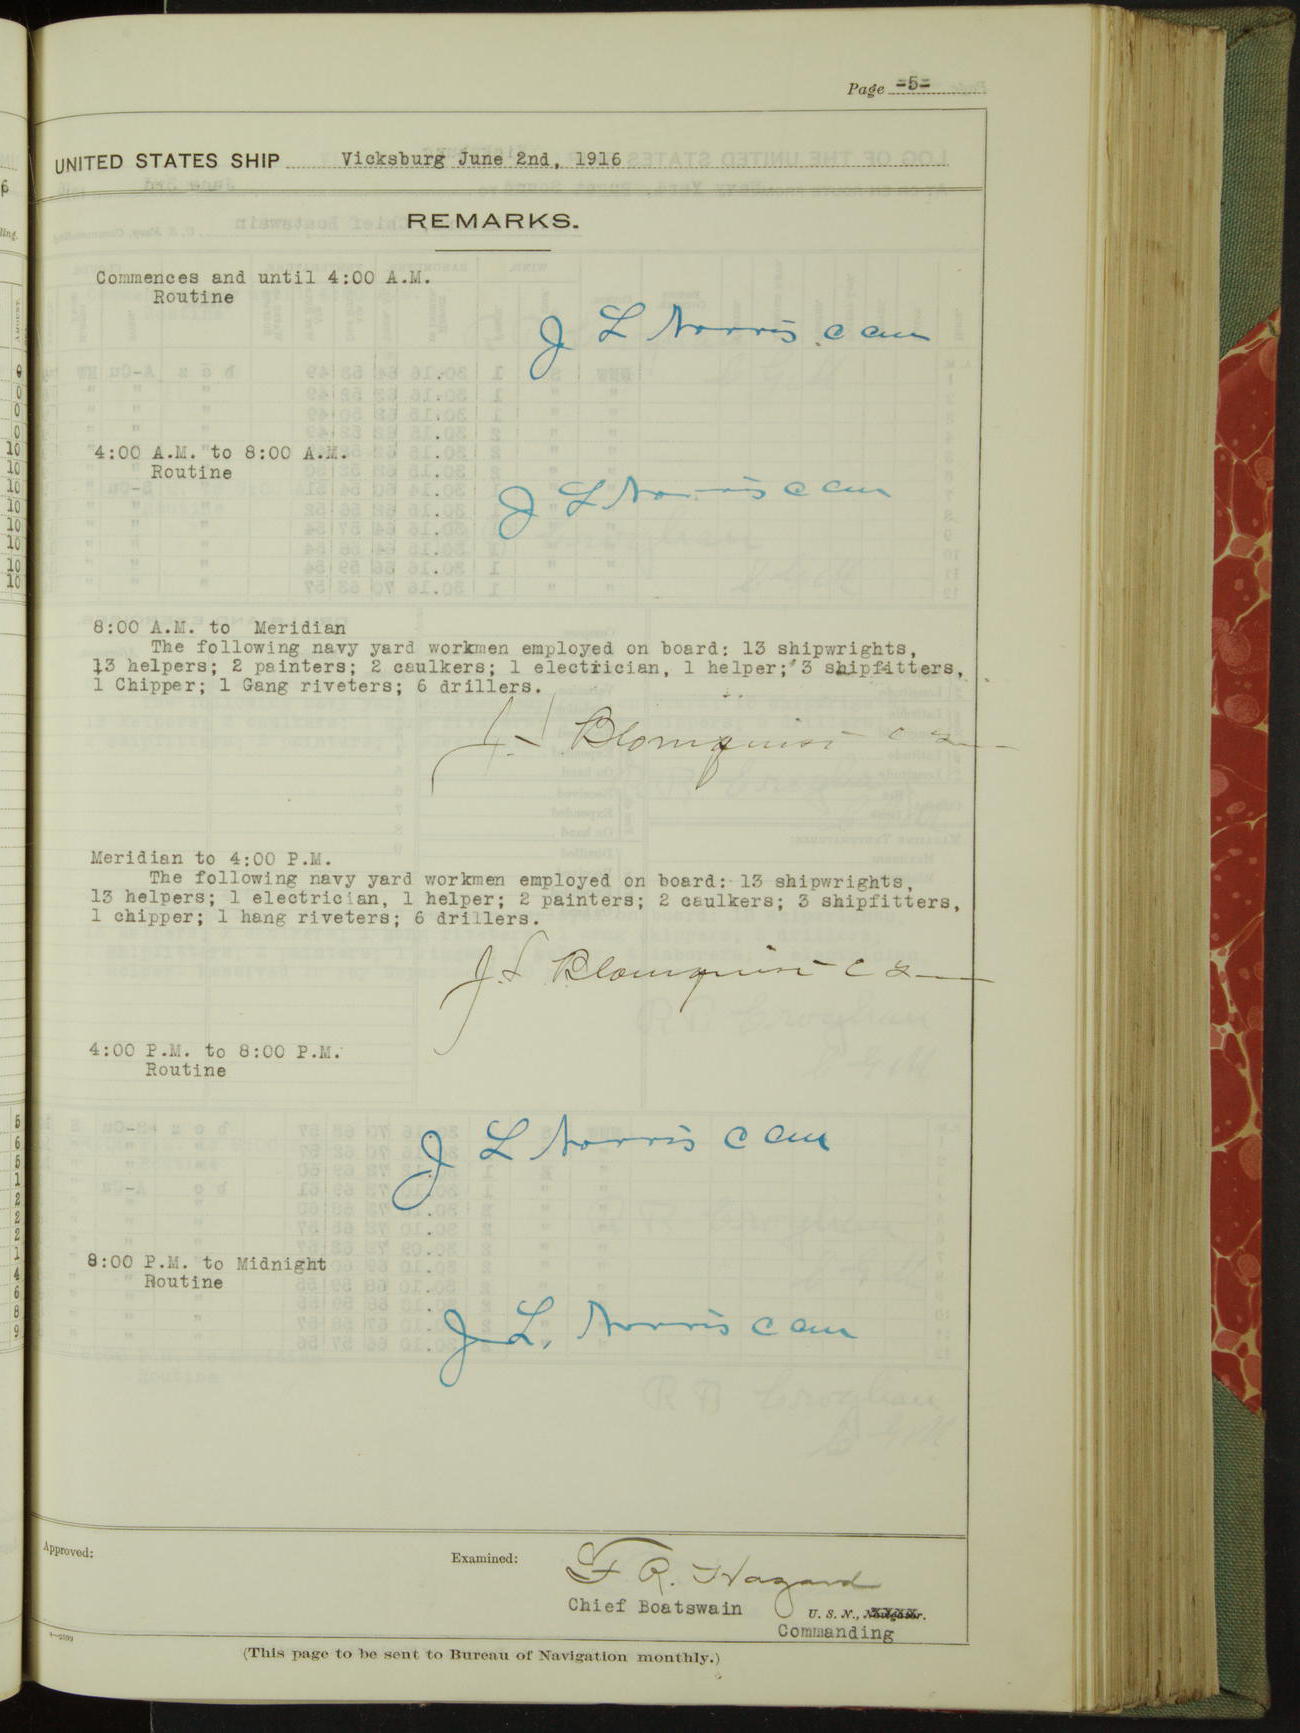 Page -5-
UNITED STATES SHIP Vicksburg June 2nd, 1916
REMARKS.
Commences and until 4:00 A.M.
Routine
J L Norris C CM
4:00 A.M. to 8:00 A.M.
Routine
J L Norris C CM
8:00 A.M. to Meridian
The following navy yard workmen employed on board: 13 shipwrights,
13 helpers; 2 painters; 2 caulkers; 1 electrician, 1 helper; 3 shipfitters,
1 Chipper; 1 Gang riveters; 6 drillers.
Blomquist
Meridian to 4:00 P.M.
The following navy yard workmen employed on board: 13 shipwrights,
13 helpers; 1 electrician, 1 helper; 2 painters; 2 caulkers; 3 shipfitters,
1 chipper; 1 hang riveters; 6 drillers.
Blomquist
4:00 P.M. to 8:00 P.M.
Routine
J L Norris C CM
8:00 P.M. to Midnight
Routine
J L. Norris C CM
Approved:
Examined:
F R. Hazard
Chief Boatswain U. S. N.,
Commanding
(This page to be sent to Bureau of Navigation monthly.)